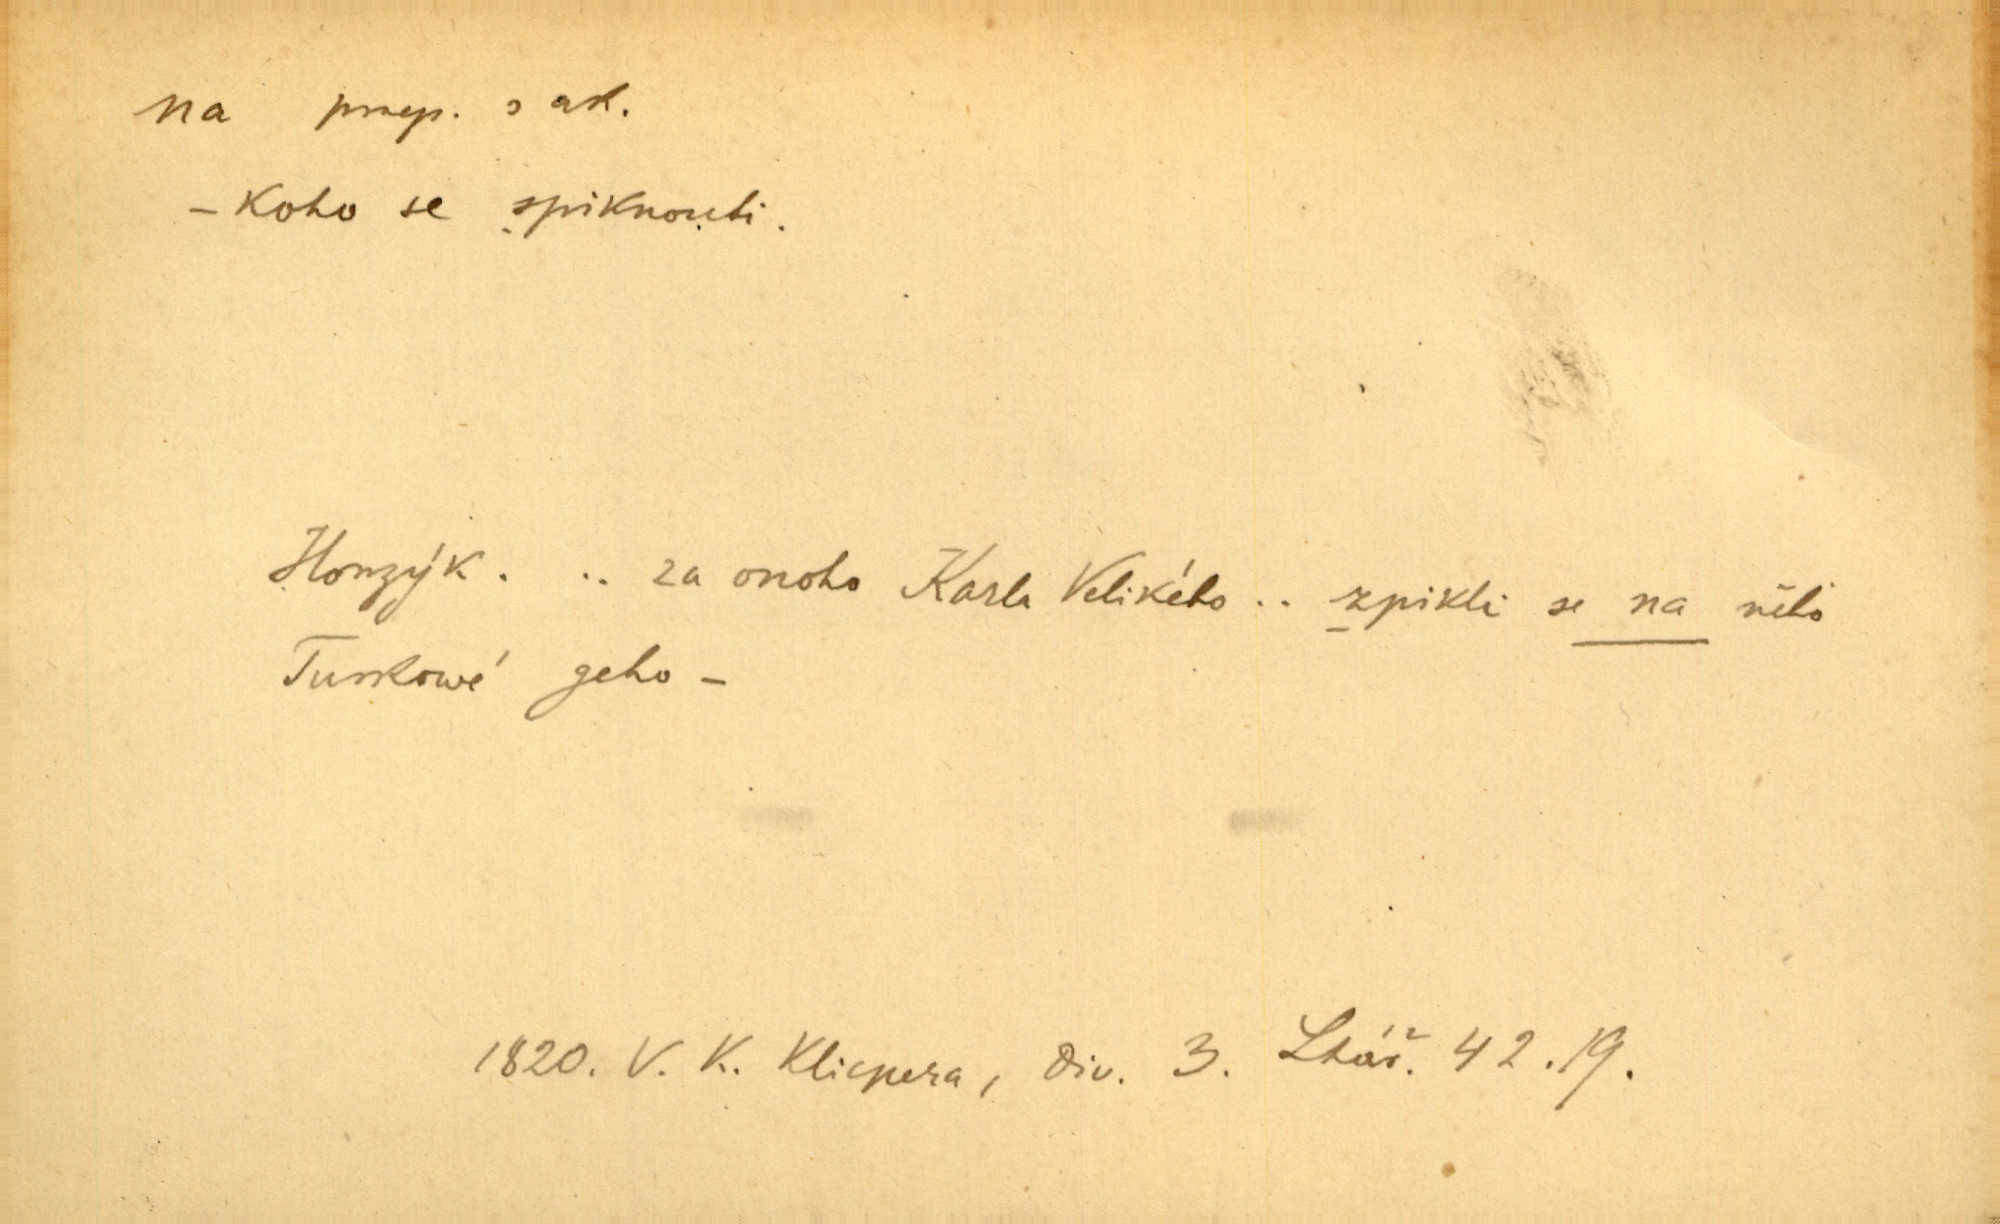 na praep. s ak.
- koho se spiknouti.
Honzýk. .. za onoho Karla Velikého .. zpikli se na něho
Turkowé geho -
1820. V. K. Klicpera, Div. 3. Lhář. 42.19.